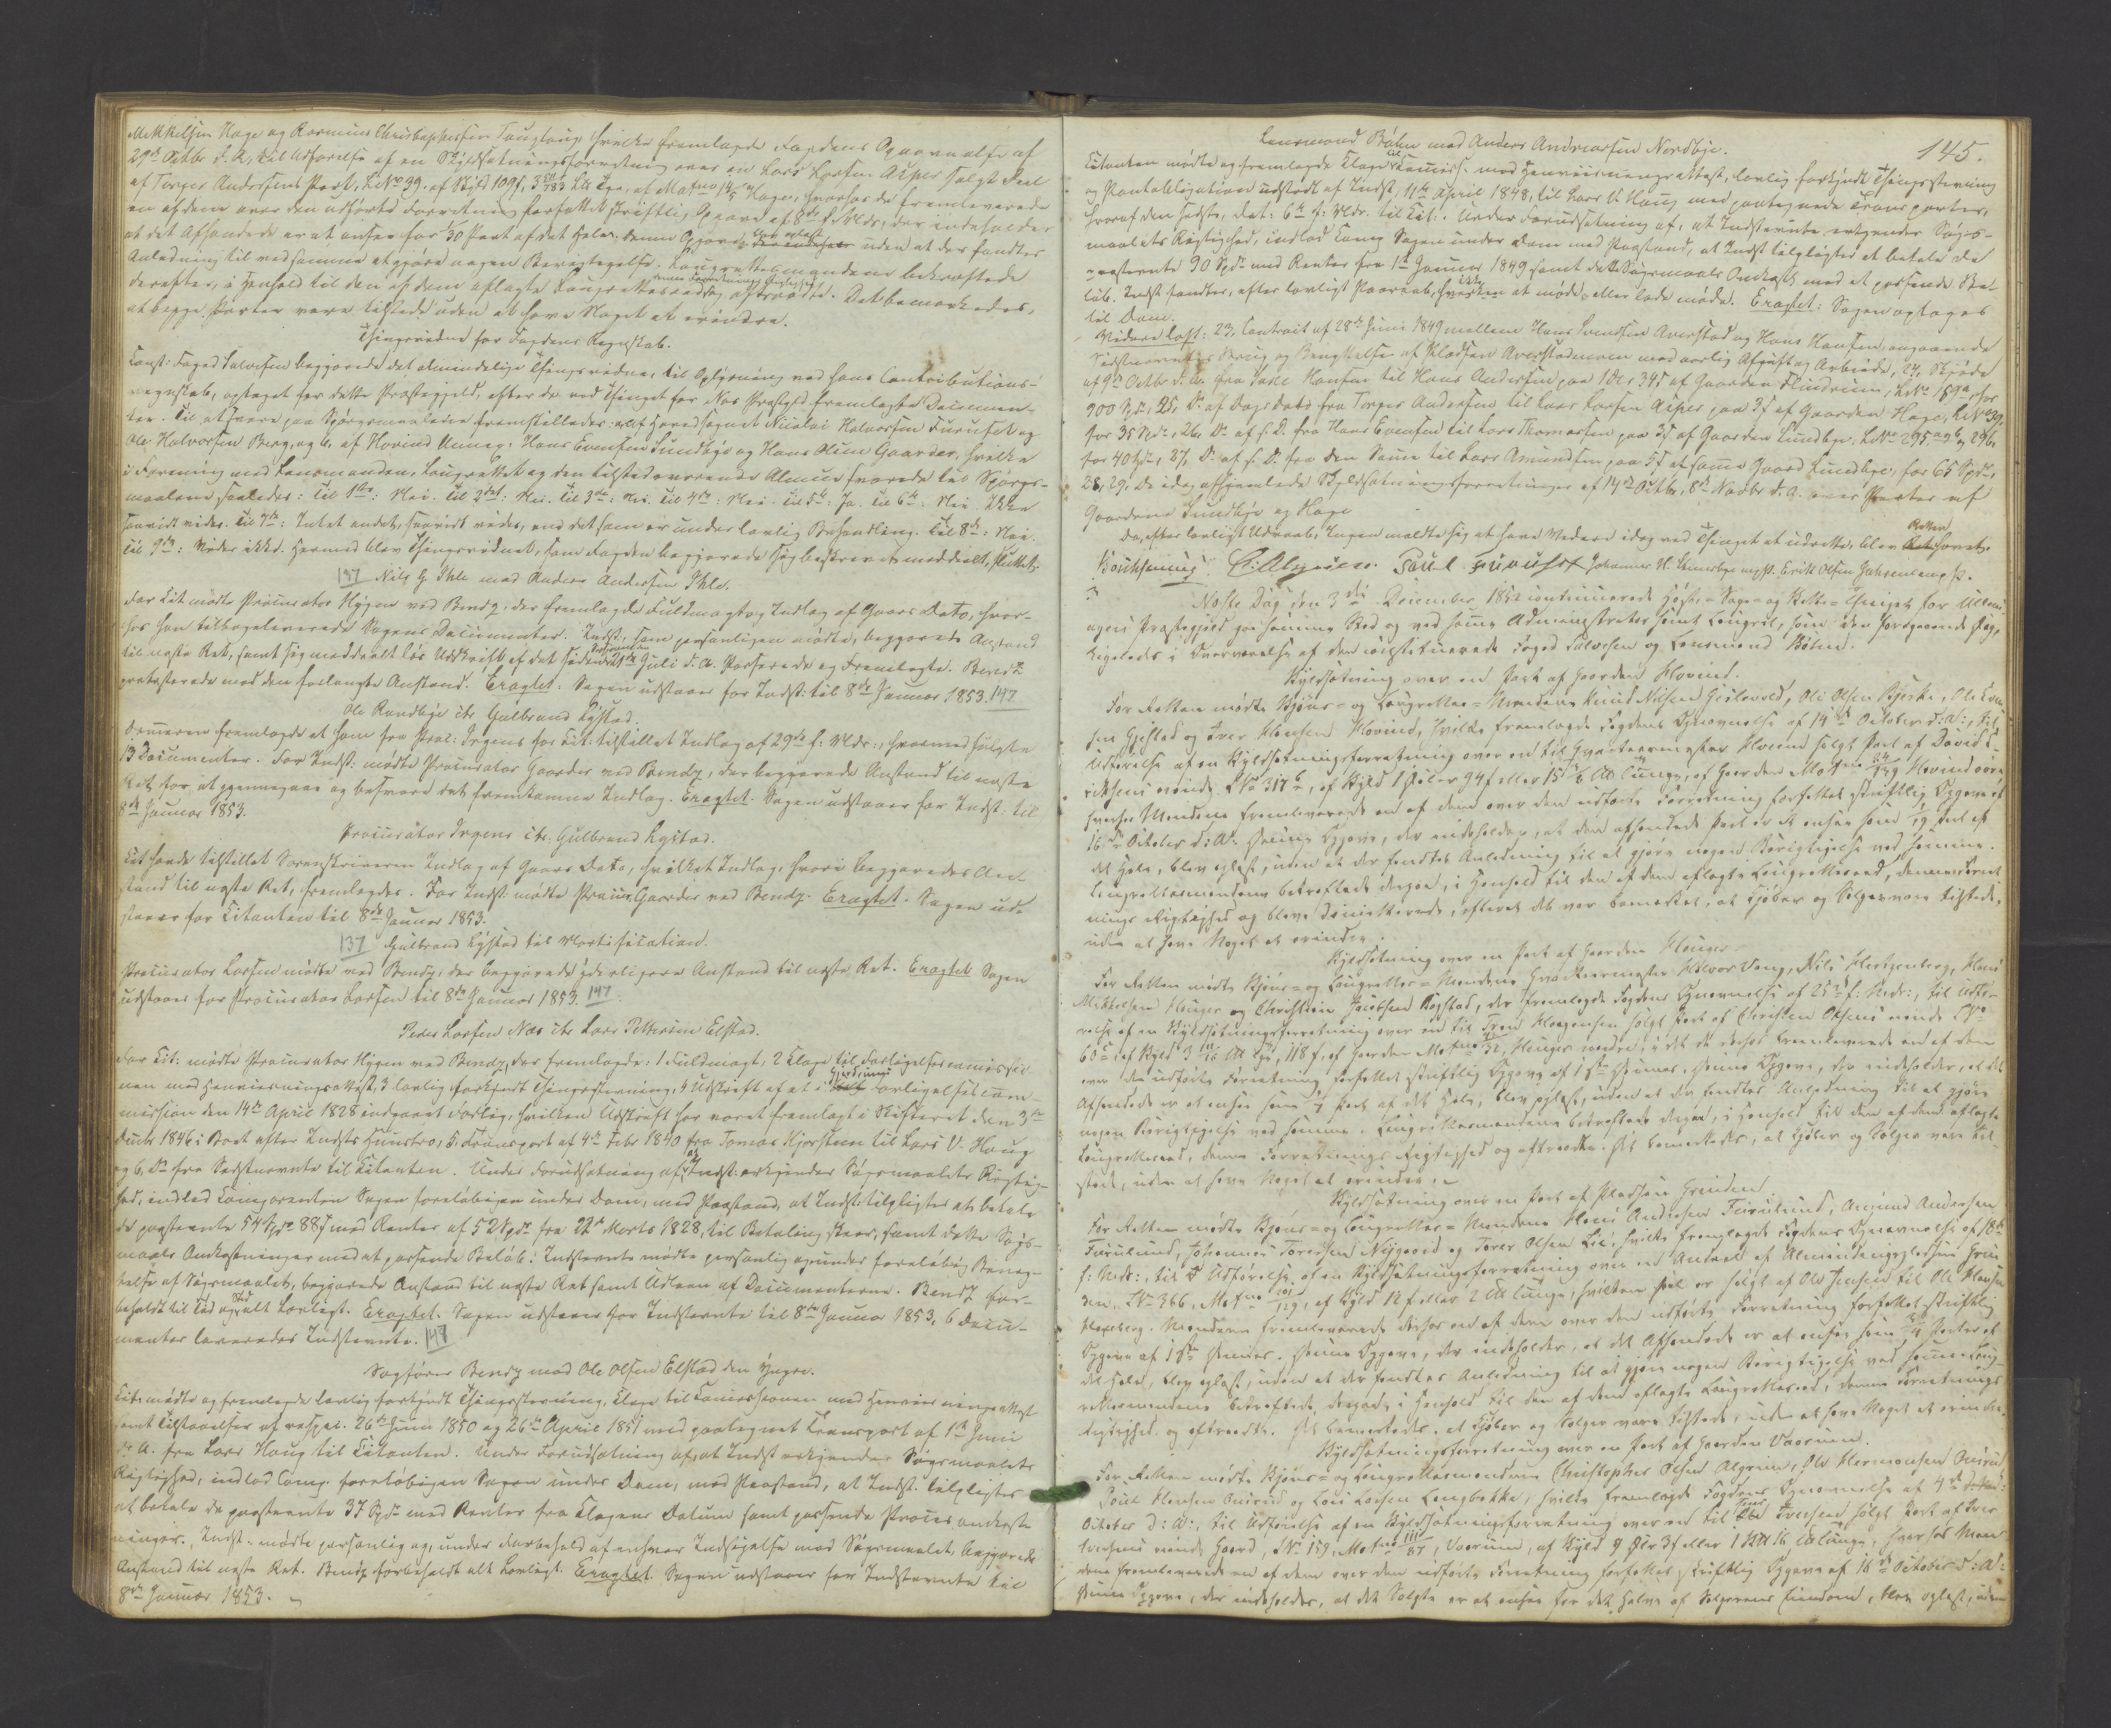 Mikkelsen Hage og Rasmus Christophersen Tanglang, hvilke fremlagde Fogdens Opnævnelse af
29de Octbr d. A. til Udførelse af en Skyldsætningsforretning over en Lars Larsen Asper solgt Deel
af Torger Andersens Part, LNo 39, af Hage, hvorhos de fremleverede
en af dem over den udførte Forretning forfattet skriftlig Opgave af 8de f. Mdr., der indeholder
at det Afhændede er at ansee for 30 Part af det Hele. Denne Opgave blev oplæst uden at der fandtes
Anledning til ved samme at gjøre nogen Berigtigelse. Laugrettesmændene bekræftede
derefter, i Henhold til den af dem aflagte Laugrettesed denne Forretnings Rigtighed og aftraadte. Det bemærkedes,
at begge Parter vare tilstede uden at have Noget at erindre.
Thingsvidne for Fogdens Regnskab.
Const: Foged Salvesen begjærede det almindelige Thingsvidne, til Oplysning ved hans Contributions-
regnskab, optaget for dette Præstegjeld, efter de ved Thinget for Næs Præstgjd fremlagte Documen-
ter. Til at svare paa Spørgsmaalene fremstilledes: af Hovedsognet Nicolai Halvorsen Furuset og
Ole Halvorsen Berg, og b. af Hovind Annex: Hans Evensen Lundbye og Hans Olsen Gaarder, hvilke
i Forening med Lensmanden, Laugrettet og den tilstedeværende Almue svarede til Spørgs-
maalene saaledes: Til 1ste: Nei. Til 2det: Nei. Til 3de: Nei. Til 4de: Nei. Til 5te: Ja. Til 6te: Nei. Ikke
saavidt vides. Til 7de: Intet andet, saavidt vides, end det som er under lovlig Behandling. Til 8de: Nei.
Til 9de: Vides ikke. Hermed blev Thingsvidnet, som Fogden begjærede sig beskrevet meddeelt, sluttet.
147 Nils G. Ihle mod Anders Andersen Ihle.
For Cit mødte Procurator Hygen ved Bendz, der fremlagde Fuldmagt og Indlæg af Gaars Dato, hvor-
hos han tilbageleverede Sagens Documenter. Indst., som personligen mødte, begjærede Anstand
til næste Ret, samt sig meddeelt løs Udskrift af det siden 21de Juli d. A. Passerede og Fremlagte. Bendz
protesterede mod den forlangte Anstand. Eragtet: Sagen udstaaer for Indst: til 8de Januar 1853. 147
Ole Randbye ctr. Gulbrand Lystad.
Dommeren fremlagde et ham fra Proc: Irgens for Cit: tilstillet Indlæg af 29de f. Mdr., hvormed fulgte
13 Documenter. For Indst: mødte Procurator Gaarder ved Bendz, der begjærede Anstand til næste
Ret, for at gjennemgaae og besvare det fremkomne Indlæg. Eragtet: Sagen udstaaer for Indst. til
8de Januar 1853.
Procurator Irgens ctr. Gulbrand Lystad.
Cit havde tilstillet Sorenskriveren Indlæg af Gaars Dato, hvilket Indlæg, hvori begjæredes An-
stand til næste Ret, fremlagdes. For Indst: mødte Procur. Gaarder ved Bendz. Eragtet: Sagen ud-
staaer for Citanten til 8de Januar 1853.
137 Gulbrand Lystad til Mortification.
Procurator Larsen mødte ved Bendz, der begjærede yderligere Anstand til næste Ret. Eragtet Sagen
udstaaer for Procurator Larsen til 8de Januar 1853. 147
Peder Larsen Næs ctr. Lars Pettersen Elstad.
For Cit: mødte Procurator Hygen ved Bendz, der fremlagde: 1 Fuldmagt, 2 Klage til Forligelsescommissio-
nen med Henviisningsattest, 3 lovlig forkyndt Thingsstevning, 4 Udskrift af et i Forligelsescom-
mission den 14de April 1828 indgaaet Forlig, hvilken Udskrift har været fremlagt i Skifteret den 3de
Decbr 1846 i Boet efter Indsts Hunstro, 5 Transport af 4de Febr 1840 fra Tomas Hjorstuen til Lars V. Haug
og 6. Do fra Sidstnævnte til Citanten. Under Forudsætning af, at Indst: erkjender Søgsmaalets Rigtig-
hed, indlod Comparenten Sagen foreløbigen under Dom, med Paastand, at Indst: tilpligtes at betale
de paastevnte 54 Spd. 88 s med Renter af 52 Spd. fra 22de Marts 1828, til Betaling skeer, samt dette Søgs-
maals Omkostninger med et passende Beløb. Indstevnte mødte personlig og under foreløbig Benæg-
telse af Søgsmaalet, begjærede Anstand til næste Ret samt Udlaan af Documenterne. Bendz for-
beholdt til Tid og Sted alt Lovligt. Eragtet: Sagen udstaaer for Indstevnte til 8de Januar 1853. 6 Docu-
menter leveredes Indstevnte. 147
Sagfører Bendz mod Ole Olsen Elstad den Yngre.
Cit: mødte og fremlagde lovlig forkyndt Thingsstevning, Klage til Commissionen med Henviisningsattest
samt Tilstaaelser af respec. 26de Juni 1850 og 26de April 1851 med paategnet Transport af 1ste Juni
d. A. fra Lars Haug til Citanten. Under Forudsætning af, at Indst erkjender Søgsmaalets
Rigtighed, indlod Comp. foreløbigen Sagen under Dom, med Paastand, at Indst: tilpligtes
at betale de paastevnte 37 Spd. med Renter fra Klagens Datum samt passende Procesomkost-
ninger. Indst: mødte personlig og, under Forbehold af enhver Indsigelse mod Søgsmaalet, begjærede
Anstand til næste Ret. Bendz forbeholdt alt Lovligt. Eragtet: Sagen udstaaer for Indstevnte til
8de Januar 1853.
145.
Lensmand Bøhn mod Anders Andreassen Nordbye.
Citanten mødte og fremlagde Klage til Commiss. med Henviisningsattest, lovlig forkyndt Thingsstevning
og Pantobligation udstedt af Indst, 11te April 1848, til Lars V. Haug med paategnede Transporter,
hvoraf den sidste, dat: 6te f. Mdr. til Cit. Under Forudsætning af, at Indstevnte erkjender Søgs-
maalets Rigtighed, indlod Comp Sagen under Dom med Paastand, at Indst tilpligtes at betale de
paastevnte 90 Spd. med Renter fra 1ste Januar 1849 samt dette Søgsmaals Omkost. med et passende Be-
løb. Indst fandtes, efter lovligt Paaraab, ikke at møde eller lade møde. Eragtet: Sagen optages
til Dom.
Videre læst: 23, Contract af 28de Juni 1849 mellem Hans Svendsen Averstad og Hans Hansen angaaende
Sidstnævntes Brug og Benyttelse af Pladsen Averstadmoen mod aarlig Afgift og Arbeide, 24, Skjøde
af 9de Octbr d. A. fra Hansen til Hans Andersen paa 1 Dlr 34 s af Gaarden Flindrum, LNo 189a, for
900 Spd., 25, Do af Dags Dato fra Torger Andersen til Lars Larsen Asper paa 3 s af Gaarden Hage, LNo 39,
for 35 Spd., 26, Do af s. D. fra Hans Evensen til Lars Thomassen paa 3 s af Gaarden Lundbye, LNo 295 og 296,
for 40 Spd., 27, Do af s. D. fra den Samme til Lars Amundsen paa 5 s af samme Gaard Lundbye, for 65 Spd.,
28, 29, De idag afhjemlede Skyldsætningsforretninger af 14de Octbr, 8de Novbr d. A. over Parter af
Gaardene Lundbye og Hage
Da, efter lovligt Udraab, Ingen meldte sig at have Videre idag ved Thinget at udrette, blev Retten hævet.
Paul Furuset Johannes H. m.p.P. Erik Olsen m.p.P.
Næste Dag den 3die December 1852 continuerede Høste- Sage- og Skatte- Thinget for Ullens-
agers Præstegjeld paa samme Sted og ved samme Administrator samt Laugret, som den foregaaende Dag,
ligeledes i Overværelse af den constituerede Foged Salvesen og Lensmand Bøhn.
Skyldsætning over en Part af Gaarden Hovind.
For Retten mødte Skjøns- og Laugrettes- Mændene Knud Nilsen Gislevold, Ole Olsen Bjerke, Ole
sen Gjestad og Iver Hansen Hovind, hvilke fremlagde Fogdens Opnævnelse af 14de October d: A:, til
Udførelse af en Skyldsætningsforretning over en til Qvarteermester Hovind solgt Part af David E-
riksens eiende LNo 317b, af Skyld 1 Daler 94 s eller Tunge, af Gaarden Matno Hovind øvre
hvorhos Mændene fremleverede en af dem over den udførte Forretning forfattet skriftlig Opgave af
16de October d: A: Denne Opgave, der indeholder, at den afhændede Part er at ansee som Deel af
det Hele, blev oplæst, uden at der fandtes Anledning til at gjøre nogen Berigtigelse ved samme.
Laugrettesmændene bekræftede derpaa, i Henhold til den af dem aflagte Laugrettesed, denne Forret-
nings Rigtighed og bleve dimitterede, efterat det var bemærket, at Kjøber og Sælger vare tilstede,
uden at have Noget at erindre.
Skyldsætning over en Part af Gaarden Hauger.
For Retten mødte Skjøns- og Laugrettes- Mændene Qvarteermester Halvor Vang, Nils Hertzenberg, Hans
Mikkelsen Hauger og Christian Jacobsen Bogstad, der fremlagde Fogdens Opnævnelse af 25de f. Mdr., til Udfø-
relse af en Skyldsætningsforretning over en til Haagensen solgt Part af Christen Olsens eiende LNo
60c, af Skyld 3 Tge, 118 s, af Gaarden Matno 32, Hauger nordre, idet de derhos fremleverede en af dem
over den udførte Forretning forfattet skriftlig Opgave af 1ste Denne Opgave, der indeholder, at det
Afhændede er at ansee som Part af det Hele, blev oplæst, uden at der fandtes Anledning til at gjøre
nogen Berigtigelse ved samme. Laugrettesmændene bekræftede derpaa, i Henhold til den af dem aflagte
Laugrettesed, denne Forretnings Rigtighed og aftraadte. Det bemærkedes, at Kjøber og Sælger vare til-
stede, uden at have Noget at erindre.
Skyldsætning over en Part af Pladsen Grinden
For Retten mødte Skjøns- og Laugrettes- Mændene Hans Andersen Furulund, Amund Andersen
Furulund, Johannes Toresen Nygaard og Torer Olsen Lie, hvilke fremlagde Fogdens Opnævnelse af 18de
f. Mdr., til Udførelse af en Skyldsætningsforretning over en Andeel af Almindingspladsen Grin-
den, LNo 366, Matno 101/129, af Skyld 12 s eller 2 Tunge, hvilken Part er solgt af Ole Jensen til Ole Hansen
Hægeberg. Mændene fremleverede derhos en af dem over den udførte Forretning forfattet skriftlig
Opgave af 18de Denne Opgave, der indeholder, at det Afhændede er at ansee som 3/4 Parter af
det Hele, blev oplæst, uden at der fandtes Anledning til at gjøre nogen Berigtigelse ved samme. Laug-
rettesmændene bekræftede derpaa, i Henhold til den af dem aflagte Laugrettesed, denne Forretnings
Rigtighed og aftraadte. Det bemærkedes, at Kjøber og Sælger vare tilstede, uden at have Noget at erindre.
Skyldsætningsforretning over en Part af Gaarden Vaarum.
For Retten mødte Skjøns- og Laugrettesmændene Christopher Olsen Algrim, Ole Hermansen Onsrud
Poul Hansen Onsrud og Lars Larsen Langbakke, hvilke fremlagde Fogdens Opnævnelse af 4de
October d: A:, til Udførelse af en Skyldsætningsforretning over en til Iversen solgt Part af Iver
Iversens eiende Gaard, LNo 159, Matno 111/87, Vaarum, af Skyld 4 Dlr 3 s eller 16 Tunge, hvorhos Mæn-
dene fremleverede en af dem over den udførte Forretning forfattet skriftlig Opgave af 16de October d: A:
Denne Opgave, der indeholder, at det Solgte er at ansee for det Halve af Sælgerens Eiendom, blev oplæst, uden